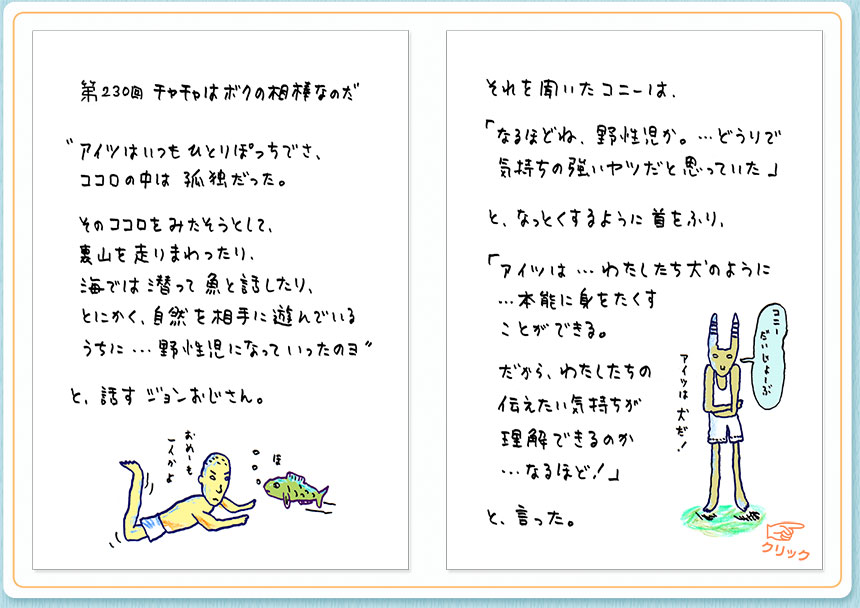 第230回 チャチャはボクの相棒なのだ
"アイツはいつもひとりぼっちでさ、
ココロの中は 孤独だった。
そのココロをみたそうとして、
裏山を走りまわったり、
海では潜って魚と話したり、
とにかく、自然を相手に遊んでいる
うちに…野性児になっていったのヨ"
と、話す ジョンおじさん。
おめーも
一人かよ
ほ
それを聞いたコニーは、
「なるほどね、野性児か。…どうりで
気持ちの強いヤツだと思っていた」
と、なっとくするように首をふり、
「アイツは…わたしたち犬のように
…本能に身をたくす
ことができる。
だから、わたしたちの
伝えたい気持ちが
理解できるのか
…なるほど!」
と、言った。
コニー
だいじょーぶ
アイツは犬だ!
クリック